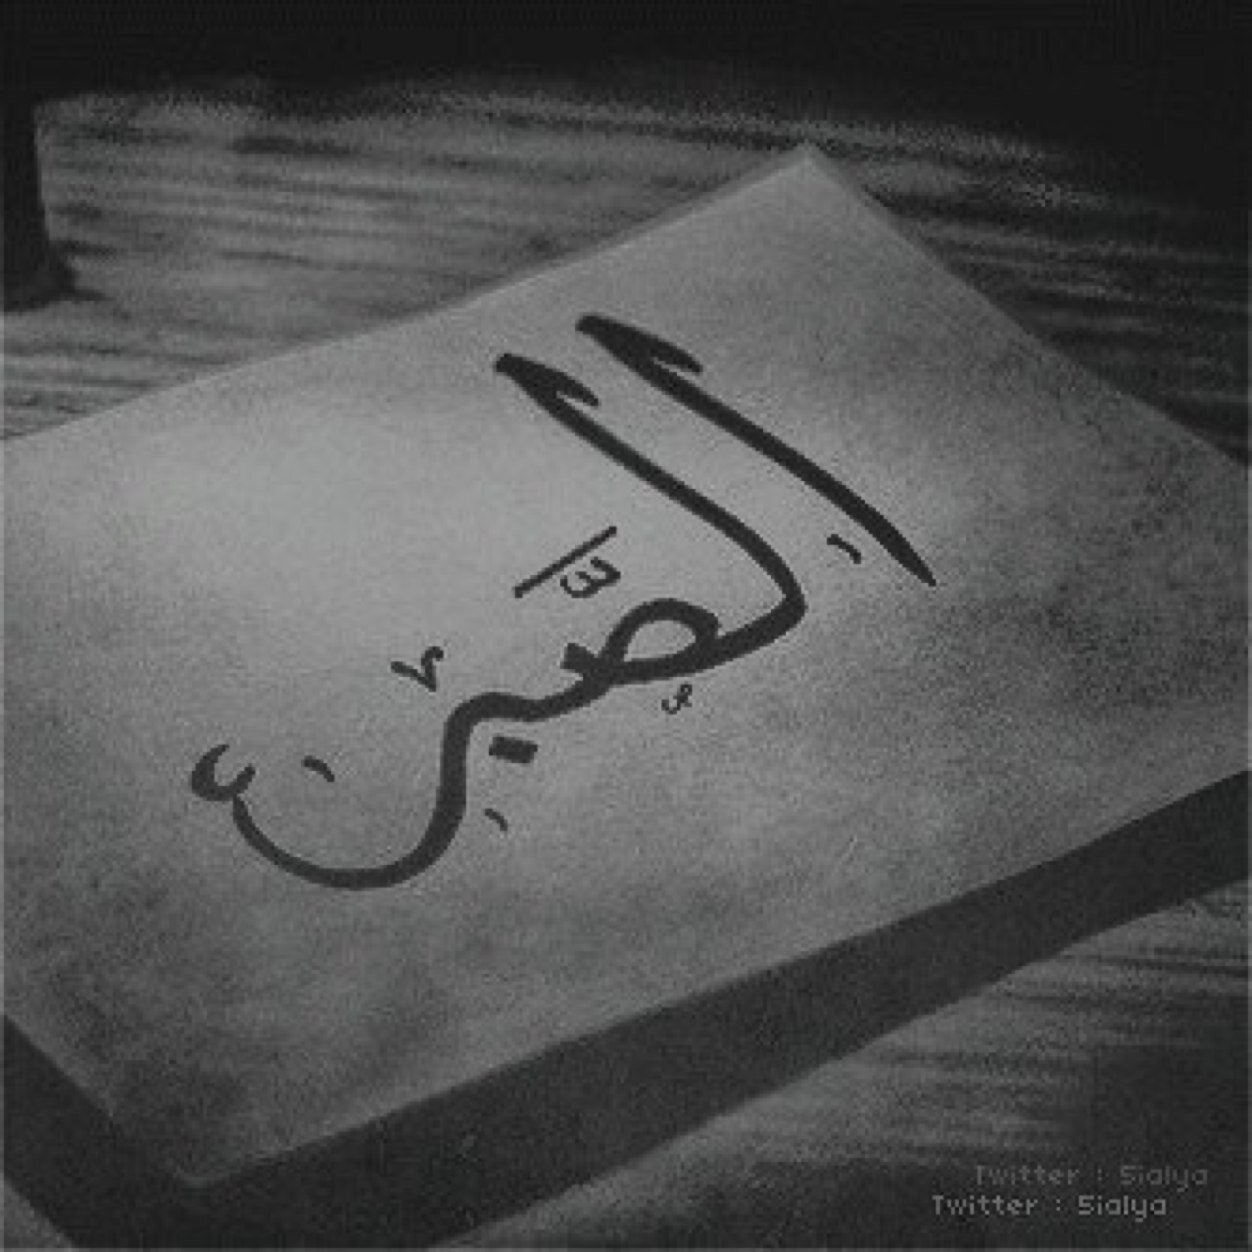 الصَّبر
Twitter : Sialya
Twitter : Sialya